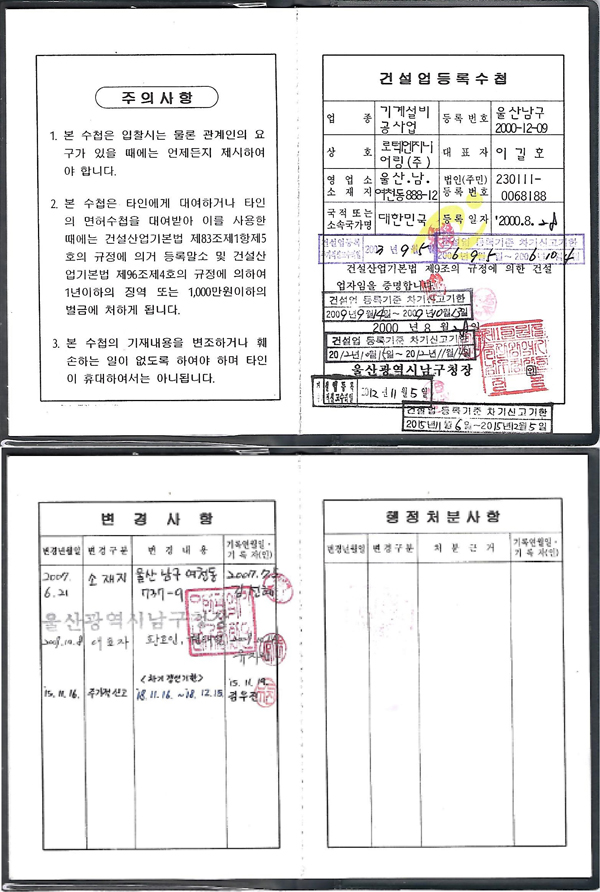 주의사항
1. 본 수첩은 입찰시는 물론 관계인의 요
구가 있을 때에는 언제든지 제시하여
야 합니다.
2. 본 수첩은 타인에게 대여하거나 타인
의 면허수첩을 대여받아 이를 사용한
때에는 건설산업기본법 제83조제1항제5
호의 규정에 의거 등록말소 및 건설산
업기본법 제96조제4호의 규정에 의하여
1년이하의 징역 또는 1,000만원이하의
벌금에 처하게 됩니다.
3. 본 수첩의 기재내용을 변조하거나 훼
손하는 일이 없도록 하여야 하며 타인
이 휴대하여서는 아니됩니다.
건설업등록수첩
업 종 기계설비공사업 등록번호 울산남구 2000-12-09
상 호 로텍엔지니어링(주) 대표자 이길호
영업소 소재지 울산.남.여천동888-12 법인(주민)등록번호 230111-0068188
국적 또는 소속국가명 대한민국 등록일자 '2000.8.28
건설업 등록기준 차기신고기한
건설산업기본법 제9조의 규정에 의한 건설
업자임을 증명합니다.
건설업 등록기준 차기신고기한
2009년 9월 14일~2009년 10월 13일
2000 년 8 월 28 일
건설업 등록기준 차기신고기한
울산광역시남구청장
2012년 11월 5일
건설업 등록기준 차기신고기한
2015년 11월 6일~2015년 12월 5일
변경사항
변경년월일 변경구분 변경내용 기록연월일·기록자(인)
2007. 6.21 소재지 울산 남구 여천동 737-9 2007.7.5
울산광역시남구청장
2009.10.8 대표자
<차기갱신기한>
'15.11.16. 주기적신고 '18.11.16.~'18.12.15. '15.11.19. 김우진
행정처분사항
변경년월일 변경구분 처분근거 기록연월일·기록자(인)